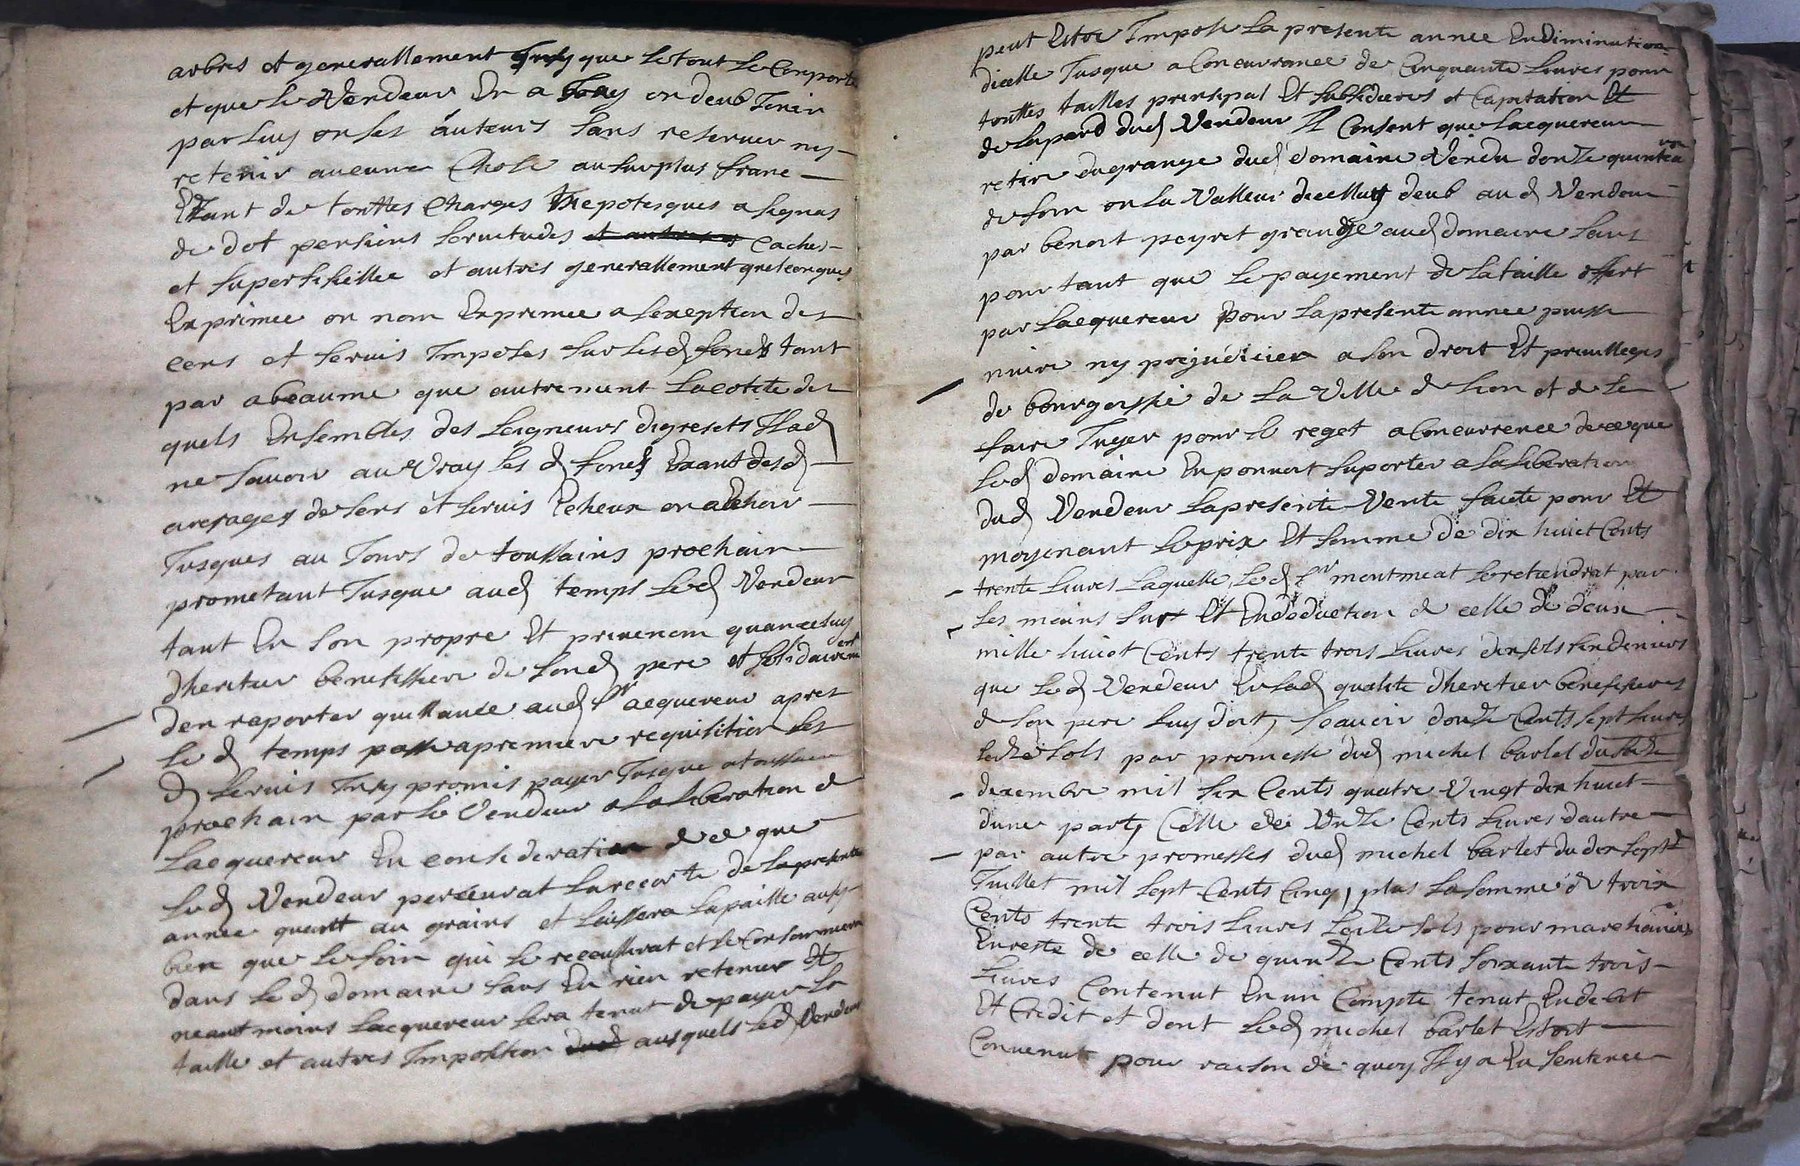 arbres et generallement Insy que le tout le Comporte
et que le Vendeur En a Jouy ou deub Jouir
par luy ou ses auteurs sans reserver ny
retenir aucune Chose au surplus franc
Et tant de touttes Charges hepotesques asignas
de dot pensions servitudes et autres Caches
et superfisielle et autres generallement quelconques
Exprimee ou nom Exprimee a lexeption des
cens et servis Imposes sur lesd fonds tant
par abeaume que autrement la cotite des
quels Ensembles des seigneurs digresets Ilad
ne scavoir au Vray lesd fonds Exant desd
arerages de sens et servis Echeux ou a Echoir
Jusques au Jours de toussains prochain
prometant Jusque aud temps led Vendeur
tant En son propre Et prive nom quance luy
dheretier benefissiere de fond pere et solidairement
den raporter quittance aud sr acquereur apres
led temps passe a premiere requisition les
d servis Insy promis payer Jusque a toussain
prochain par le Vendeur a la liberation de
Lacquereur En consideration de ce que
led Vendeur percevrat la recorte de la presente
annee quant au grains et laissera la paille aussy
bien que le foin qui se receuillirat et se Consommera
dans led domaine sans En rien retenir Et
neantmoins Lacquereur sera tenut de payer la
taille et autres Imposition ausquels led Vendeur
peut Estre Impose La presente annee En diminution
dicelle Jusque a Concurrance de Cinquante livres pour
touttes tailles prinsipal Et subsidieres et Capitation Et
de la pard dud Vendeur Il Consent que Lacquereur
retire du grange dud domaine Vendu douze quintea
de foin ou la Valleur dicelluy deub aud Vendeur
par benoit peyret grange aud domaine sans
pour tant que le payement de la taille offert
par Lacquereur pour la presente annee puisse
nuire ny prejudicier a son droit Et privilleges
de bourgoisie de La Ville de Lion et de se
faire Juger pour le reget a Concurrence de ce que
led domaine En pouvoit suporter a la liberation
dud Vendeur La presente Vente faicte pour Et
moyenant le prix Et somme de dix huict Cents
trente Livres Laquelle led sr montmeat se retiendrat par
ses mains sur Et En deduction de celle de deux
mille huict Cents trente trois Livres dix sols six deniers
que led Vendeur En lad qualite dheretier benefisiere
de son pere luy doit, scavoir douze Cents sept livres
seize sols par promesse dud michel barlet du
dexembre mil six Cents quatre Vingt dix huict
dune part, Celle de Unze Cents livres dautre
par autre promesses dud michel barlet du dix sept
Juillet mil sept Cents Cinq, plus la somme de trois
Cents trente trois livres seize sols pour marchandises
En reste de celle de quinze Cents soixante trois
Livres Contenut En un Compte tenut En debit
Et Credit et dont led michel barlet Estoit
Convenut pour raison de quoy Il y a Eu sentence